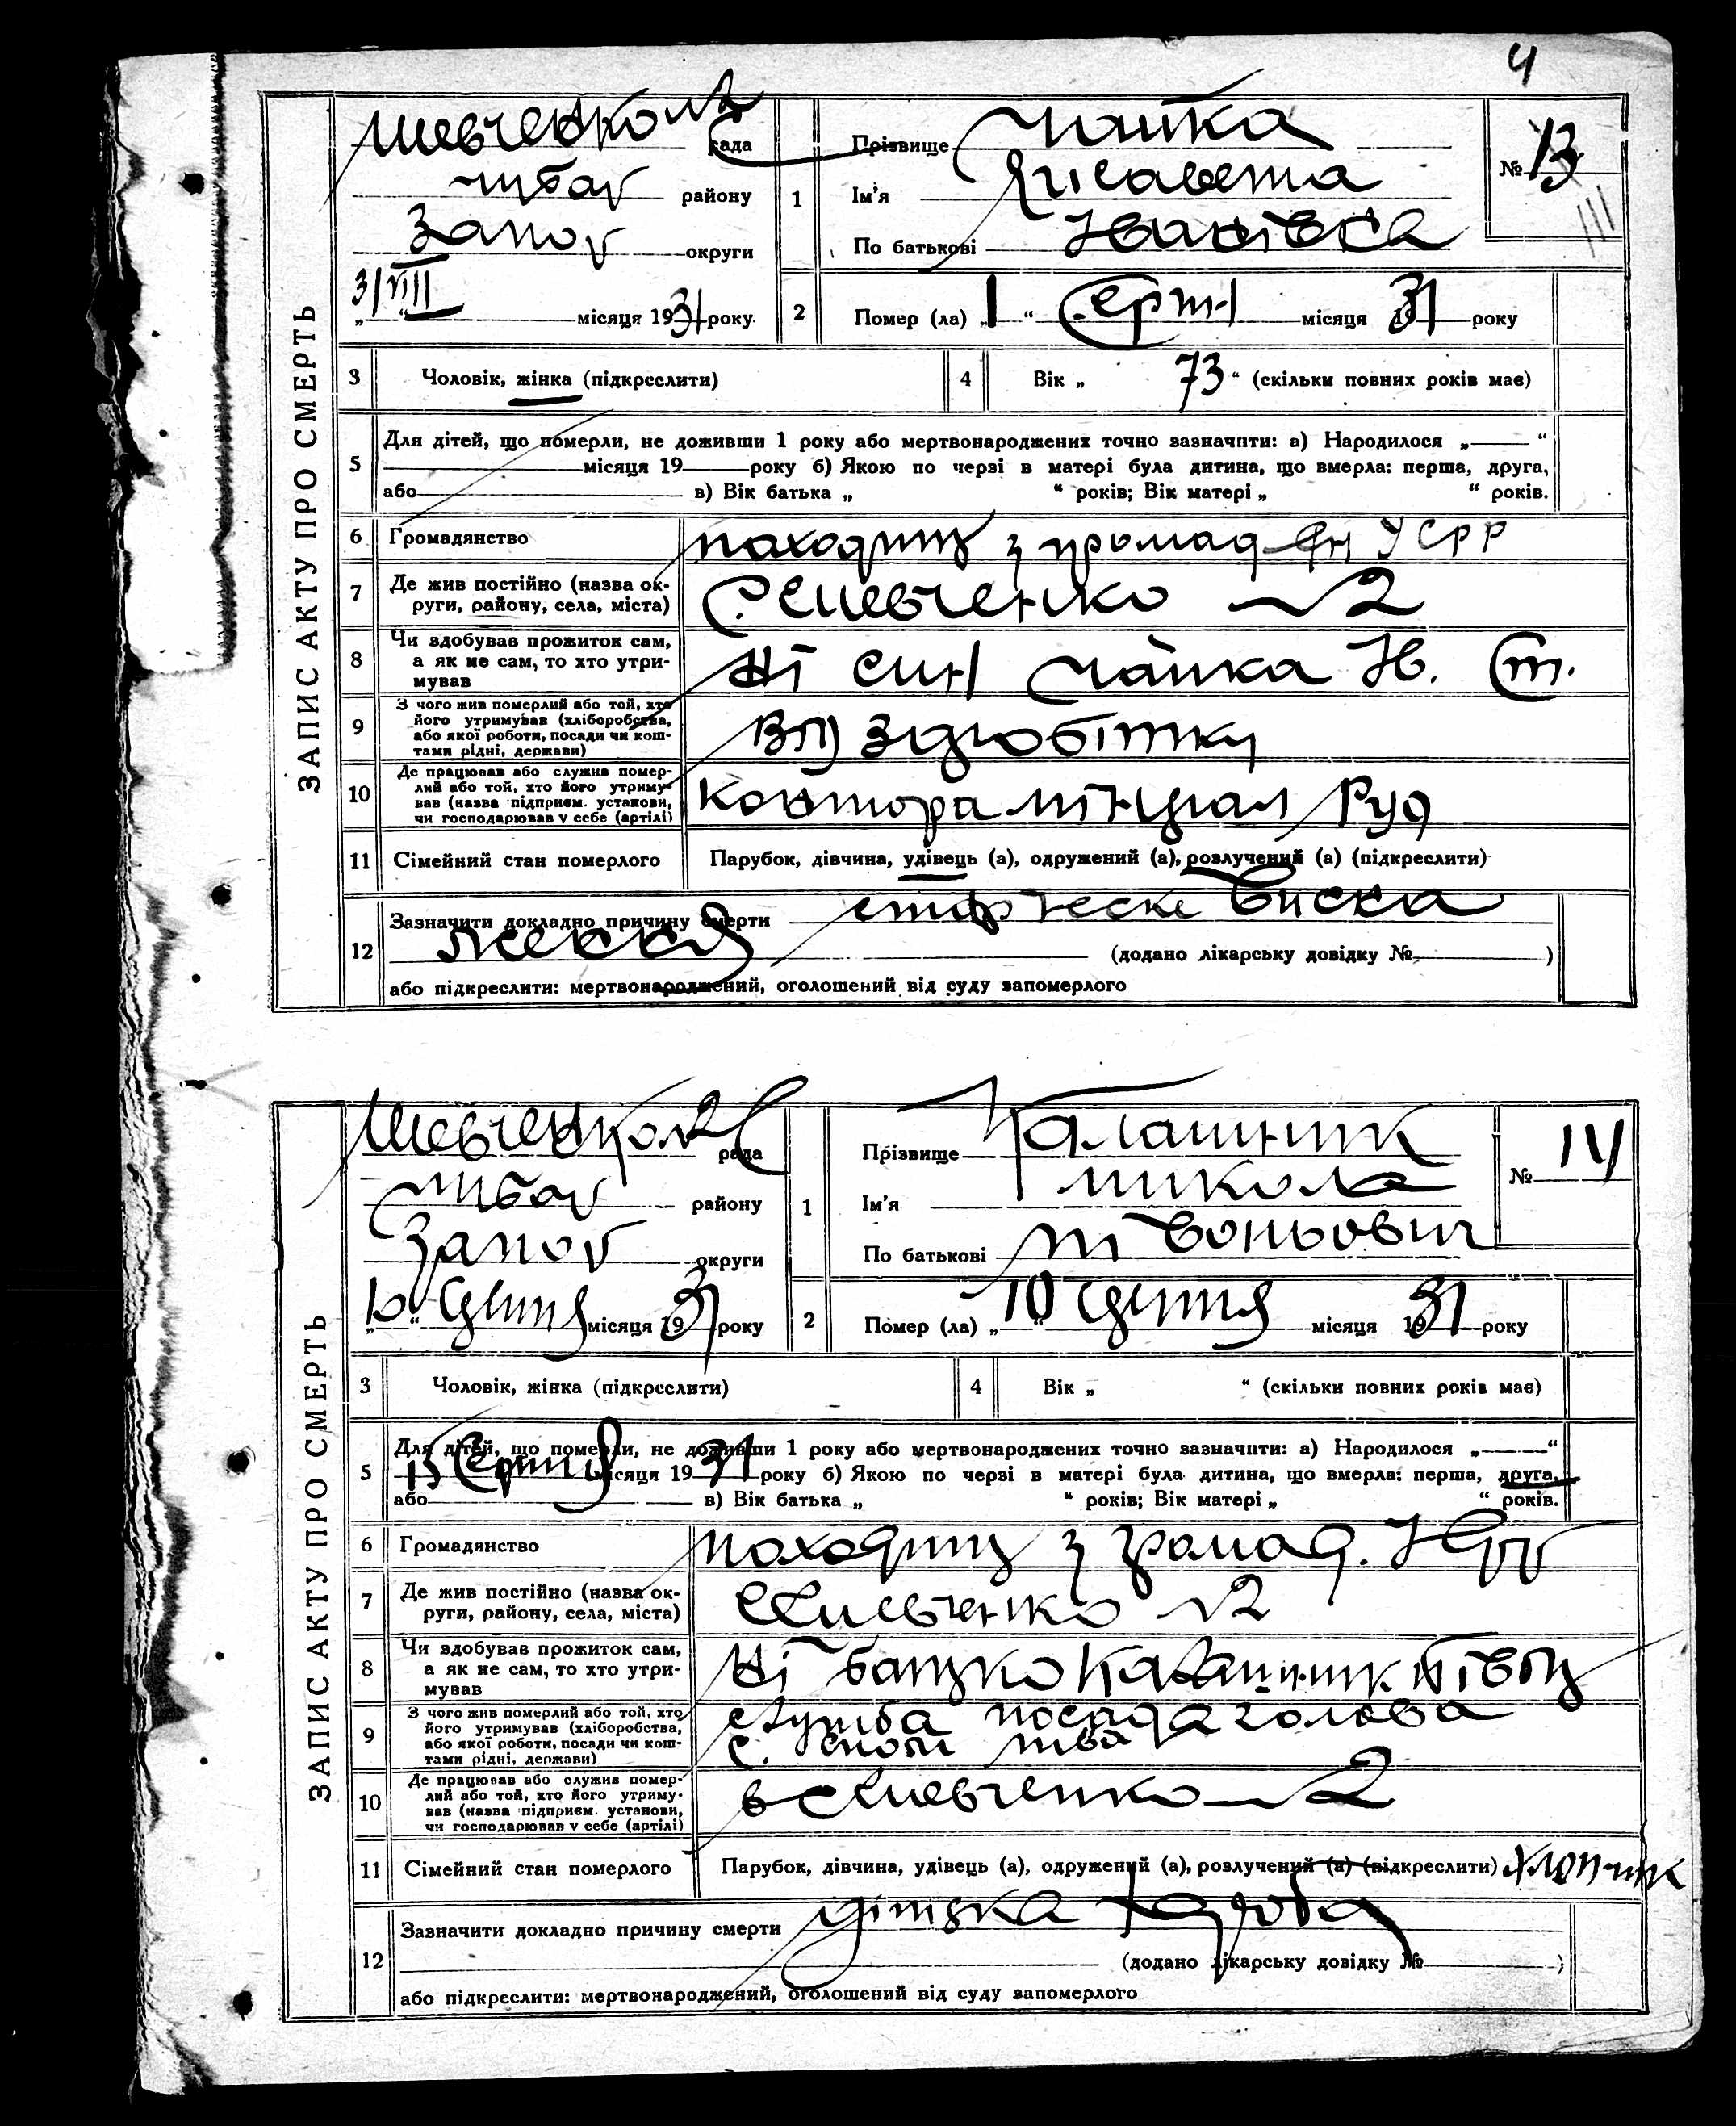 4
ЗАПИС АКТУ ПРО СМЕРТЬ
Шевченко №2 рада
району
Запор округи
3/VIII місяця 1931 року
1 Прізвище Чайка
Ім'я Єлісавета
По батькові Іванівна
№ 13
2 Помер (ла) „1“ Серпн місяця 1931 року
3 Чоловік, жінка (підкреслити)
4 Вік „73“ (скільки повних років має)
5 Для дітей, що померли, не доживши 1 року або мертвонароджених точно зазначити: а) Народилося „ “
місяця 19 року б) Якою по черзі в матері була дитина, що вмерла: перша, друга,
або в) Вік батька „ “ років; Вік матері „ “ років.
6 Громадянство походить з громадян УСРР
7 Де жив постійно (назва ок-
руги, району, села, міста) С. Шевченко №2
8 Чи здобував прожиток сам,
а як не сам, то хто утри-
мував Ні син Чайка И. Ст.
9 З чого жив померлий або той, хто
його утримував (хліборобства,
або якої роботи, посади чи кош-
тами рідні, держави)
10 Де працював або служив помер-
лий або той, хто його утриму-
вав (назва підприєм. установи,
чи господарював у себе (артілі) контора Руд
11 Сімейний стан померлого Парубок, дівчина, удівець (а), одружений (а), розлучений (а) (підкреслити)
12 Зазначити докладно причину смерти
(додано лікарську довідку № )
або підкреслити: мертвонароджений, оголошений від суду запомерлого
ЗАПИС АКТУ ПРО СМЕРТЬ
Шевченко №2 рада
району
Запор округи
„10“ Січня місяця 1931 року
1 Прізвище Калашник
Ім'я Микола
По батькові
№ 14
2 Помер (ла) „10“ Січня місяця 1931 року
3 Чоловік, жінка (підкреслити)
4 Вік „ “ (скільки повних років має)
5 Для дітей, що померли, не доживши 1 року або мертвонароджених точно зазначити: а) Народилося „ “
15 Серпня місяця 1931 року б) Якою по черзі в матері була дитина, що вмерла: перша, друга,
або в) Вік батька „ “ років; Вік матері „ “ років.
6 Громадянство походить з громад.
7 Де жив постійно (назва ок-
руги, району, села, міста) С Шевченко №2
8 Чи здобував прожиток сам,
а як не сам, то хто утри-
мував Ні батько Калашник
9 З чого жив померлий або той, хто
його утримував (хліборобства,
або якої роботи, посади чи кош-
тами рідні, держави) служба посада голова
с. спож тва
10 Де працював або служив помер-
лий або той, хто його утриму-
вав (назва підприєм. установи,
чи господарював у себе (артілі) в с Шевченко №2
11 Сімейний стан померлого Парубок, дівчина, удівець (а), одружений (а), розлучений (а) (підкреслити) хлопчик
12 Зазначити докладно причину смерти дітська хороба
(додано лікарську довідку № )
або підкреслити: мертвонароджений, оголошений від суду запомерлого